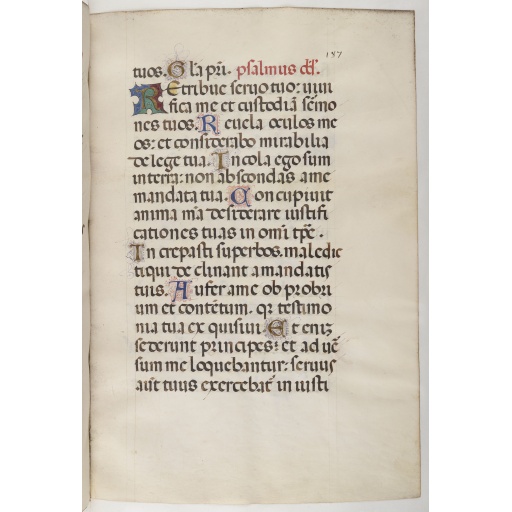 187
tuos. Gła pr̄i. psalmus dđ.
REtribue seruo tuo: uiui
fica me et custodiā sermo
nes tuos. Reuela oculos me
os: et considerabo mirabilia
de lege tua. Incola ego sum
in terra: non abscondas a me
mandata tua. Concupiuit
anima m̄a desiderare iustifi
cationes tuas in omni tp̄e.
Increpasti superbos. maledic
ti qui declinant a mandatis
tuis. Aufer a me obprobri
um et contēptum. qr testimo
nia tua exquisiui. Et eniȝ
sederunt principes: et aduē
sum me loquebantur: seruus
aut̄ tuus exercebat̄ in iusti